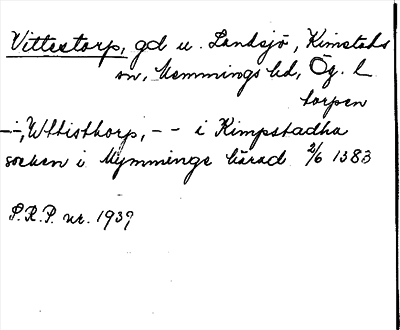 Vittestorp, gd u. Landsjö, Kimstads
sn, Memmings hd, Ög. l.
torpen
--, Wttisthorp, - - i Kimpstadha
socken i Mymminge härad 2/6 1383
S.R.P. nr. 1939